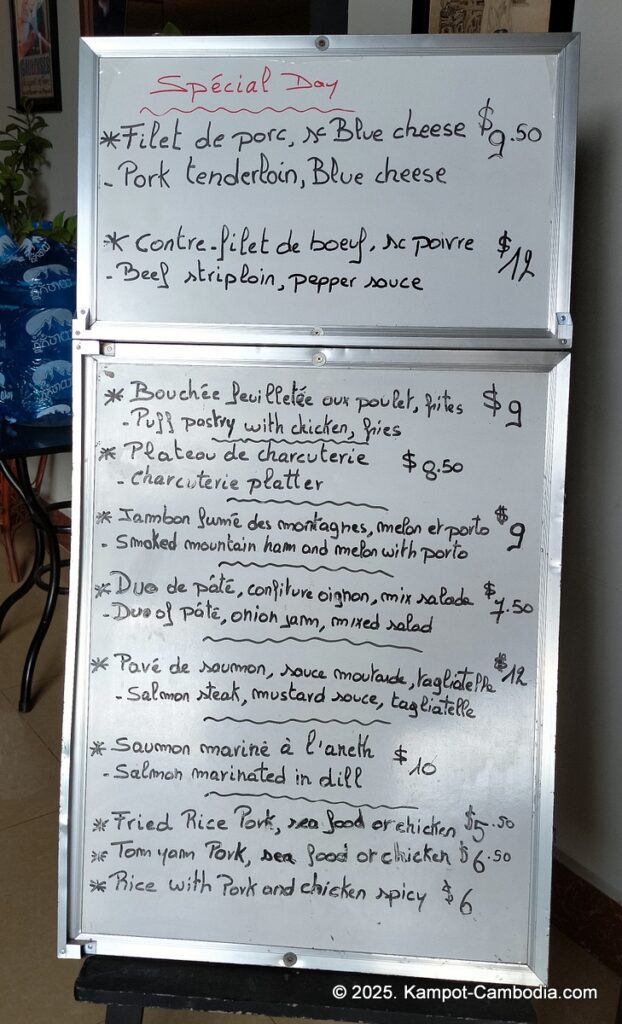 Spécial Day
*Filet de porc, sc Blue cheese $9.50
- Pork tenderloin, Blue cheese
* Contre-filet de boeuf, sc poivre $12
- Beef striploin, pepper souce
* Bouchée feuilletée aux poulet, frites $9
- Puff pastry with chicken, fries
* Plateau de charcuterie $8.50
- Charcuterie platter
* Jambon fumée des montagnes, melon et porto $9
- Smoked mountain ham and melon with porto
* Duo de pâté, confiture oignon, mix salade $7.50
- Duo of pâté, onion jam, mixed salad
* Pavé de saumon, sauce moutarde, tagliatelle $12
- Salmon steak, mustard sauce, tagliatelle
* Saumon mariné à l'aneth $10
- Salmon marinated in dill
* Fried Rice Pork, sea food or chicken $5.50
* Tom yam Pork, sea food or chicken $6.50
* Rice with Pork and chicken spicy $6
© 2025. Kampot-Cambodia.com